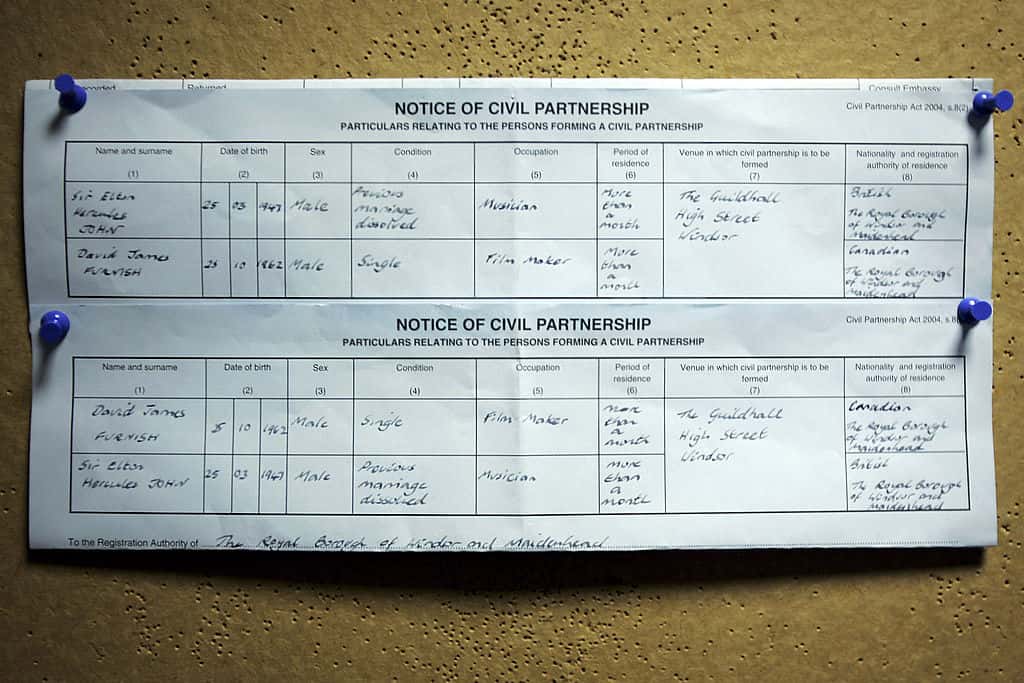 Recorded Returned Consult Embassy
NOTICE OF CIVIL PARTNERSHIP
Civil Partnership Act 2004, s.8(2)
PARTICULARS RELATING TO THE PERSONS FORMING A CIVIL PARTNERSHIP
Name and surname
(1)
Date of birth
(2)
Sex
(3)
Condition
(4)
Occupation
(5)
Period of
residence
(6)
Venue in which civil partnership is to be
formed
(7)
Nationality and registration
authority of residence
(8)
Sir Elton
Hercules
JOHN
25 03 1947
Male
Previous
marriage
dissolved
Musician
More
than
a
month
The Guildhall
High Street
Windsor
British
The Royal Borough
of Windsor and
Maidenhead
David James
FURNISH
25 10 1962
Male
Single
Film Maker
More
than
a
month
Canadian
The Royal Borough
of Windsor and
Maidenhead
NOTICE OF CIVIL PARTNERSHIP
Civil Partnership Act 2004, s.8
PARTICULARS RELATING TO THE PERSONS FORMING A CIVIL PARTNERSHIP
Name and surname
(1)
Date of birth
(2)
Sex
(3)
Condition
(4)
Occupation
(5)
Period of
residence
(6)
Venue in which civil partnership is to be
formed
(7)
Nationality and registration
authority of residence
(8)
David James
FURNISH
10 1962
Male
Single
Film Maker
more
than
a
month
The Guildhall
High Street
Windsor
Canadian
The Royal Borough
of Windsor and
Maidenhead
Sir Elton
Hercules JOHN
25 03 1947
Male
Previous
marriage
dissolved
Musician
more
than
a
month
British
The Royal Borough
of Windsor and
Maidenhead
To the Registration Authority of The Royal Borough of Windsor and Maidenhead